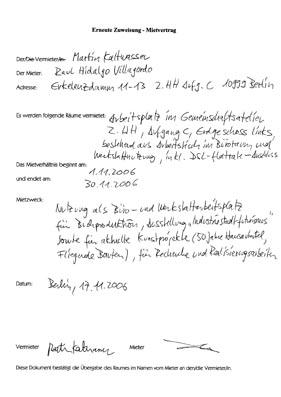 Erneute Zuweisung - Mietvertrag
Der/Die Vermieter/in: Martin Kaltwasser
Der Mieter: Raul Hidalgo Villagordo
Adresse: Erkelenzdamm 11-13 2.HH Aufg. C 10999 Berlin
Es werden folgende Räume vermietet: Arbeitsplatz im Gemeinschaftsatelier
2.HH, Aufgang C, Erdgeschoss links,
bestehend aus Arbeitstisch im Büroraum und
Werkstattnutzung, inkl. DSL-flatrate-Anschluss
Das Mietverhältnis beginnt am:
1.11.2006
und endet am:
30.11.2006
Mietzweck:
Nutzung als Büro- und Werkstattarbeitsplatz
für Buchproduktion, Ausstellung „Industriestadtfuturismus"
sowie für aktuelle Kunstprojekte (50 Jahre
Fliegende Bauten), für Recherche und Realisierungsarbeiten
Datum: Berlin, 17.11.2006
Vermieter Mieter
Diese Dokument bestätigt die Übergabe des Raumes im Namen vom Mieter an der/die Vermieter/in.